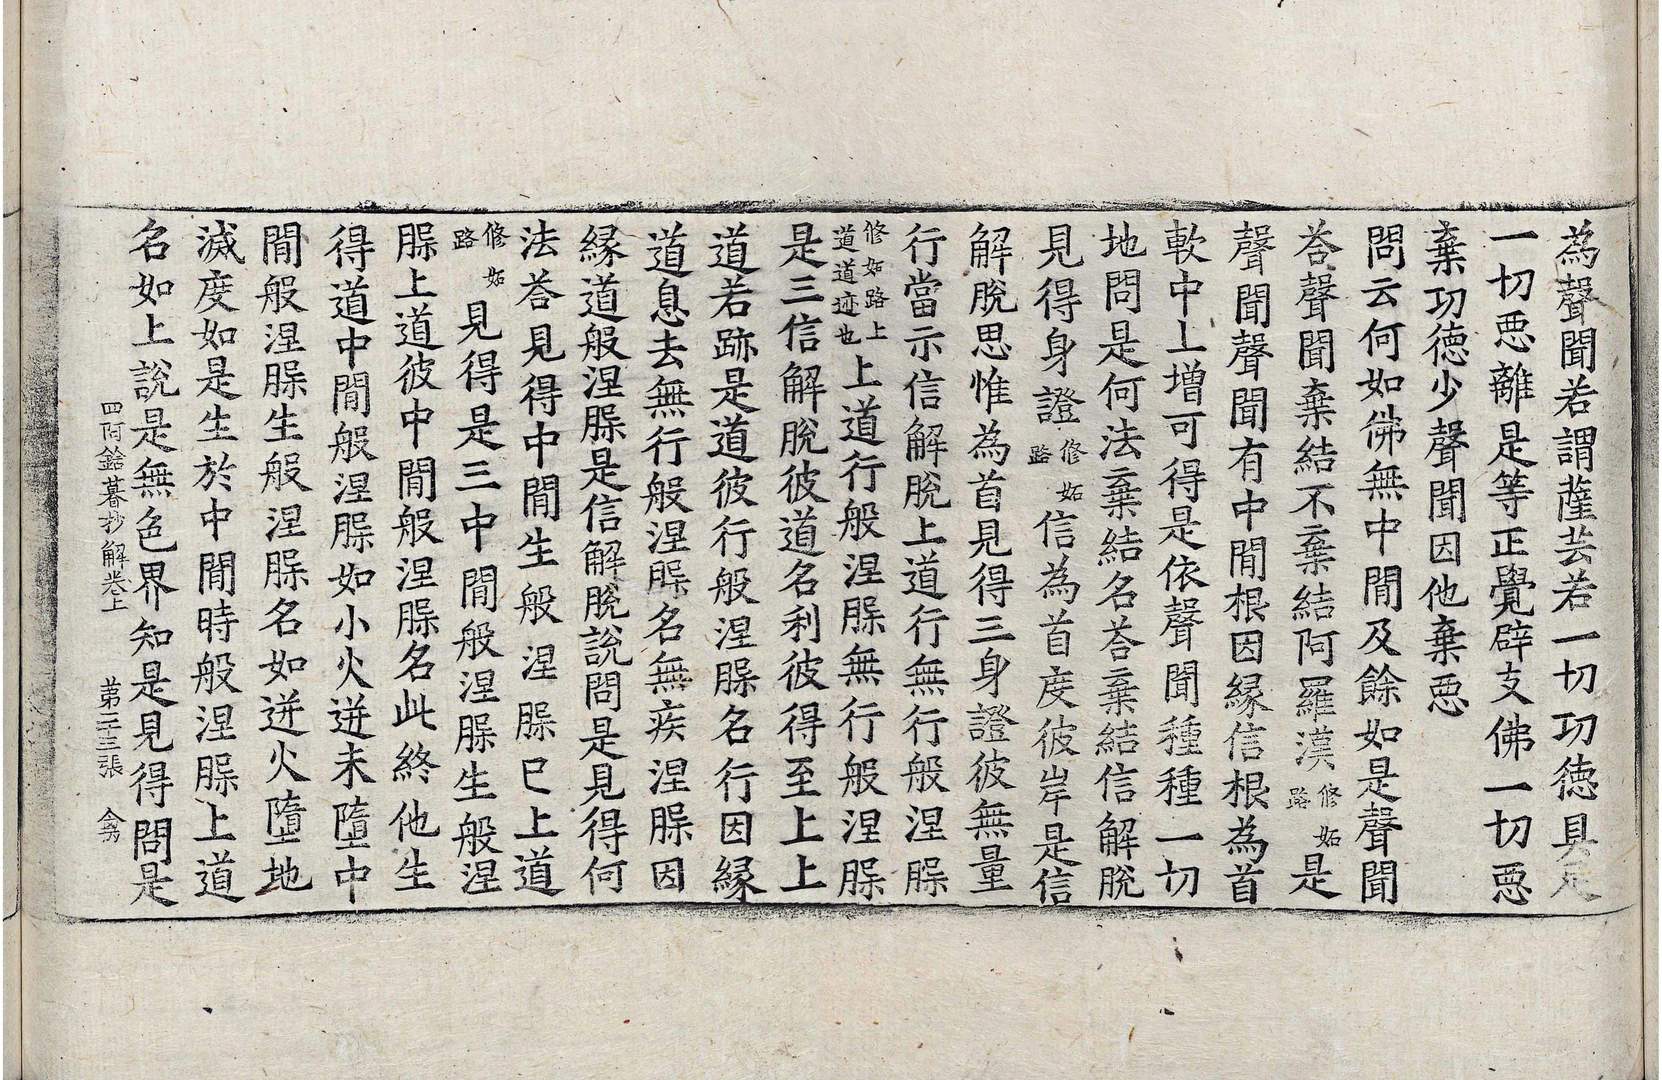 為聲聞若謂薩芸若一切功德具足
一切惡離是等正覺辟支佛一切惡
棄功德少聲聞因他棄惡
問云何如佛無中間及餘如是聲聞
荅聲聞棄結不棄結阿羅漢修妬路是
聲聞聲聞有中間根因緣信根為首
軟中上增可得是依聲聞種種一切
地問是何法棄結名荅棄結信解脫
見得身證修妬路信為首度彼岸是信
解脫思惟為首見得三身證彼無量
行當示信解脫上道行無行般涅槃
修妬路上道道迹也上道行般涅槃無行般涅槃
是三信解脫彼道名利彼得至上上
道若跡是道彼行般涅槃名行因緣
道息去無行般涅槃名無疾涅槃因
緣道般涅槃是信解脫說問是見得何
法荅見得中間生般涅槃已上道
修妬路見得是三中間般涅槃生般涅
槃上道彼中間般涅槃名此終他生
得道中間般涅槃如小火迸未墮中
間般涅槃生般涅槃名如迸火墮地
滅度如是生於中間時般涅槃上道
名如上說是無色界知是見得問是
四阿鋡暮抄解卷上 第二十三張